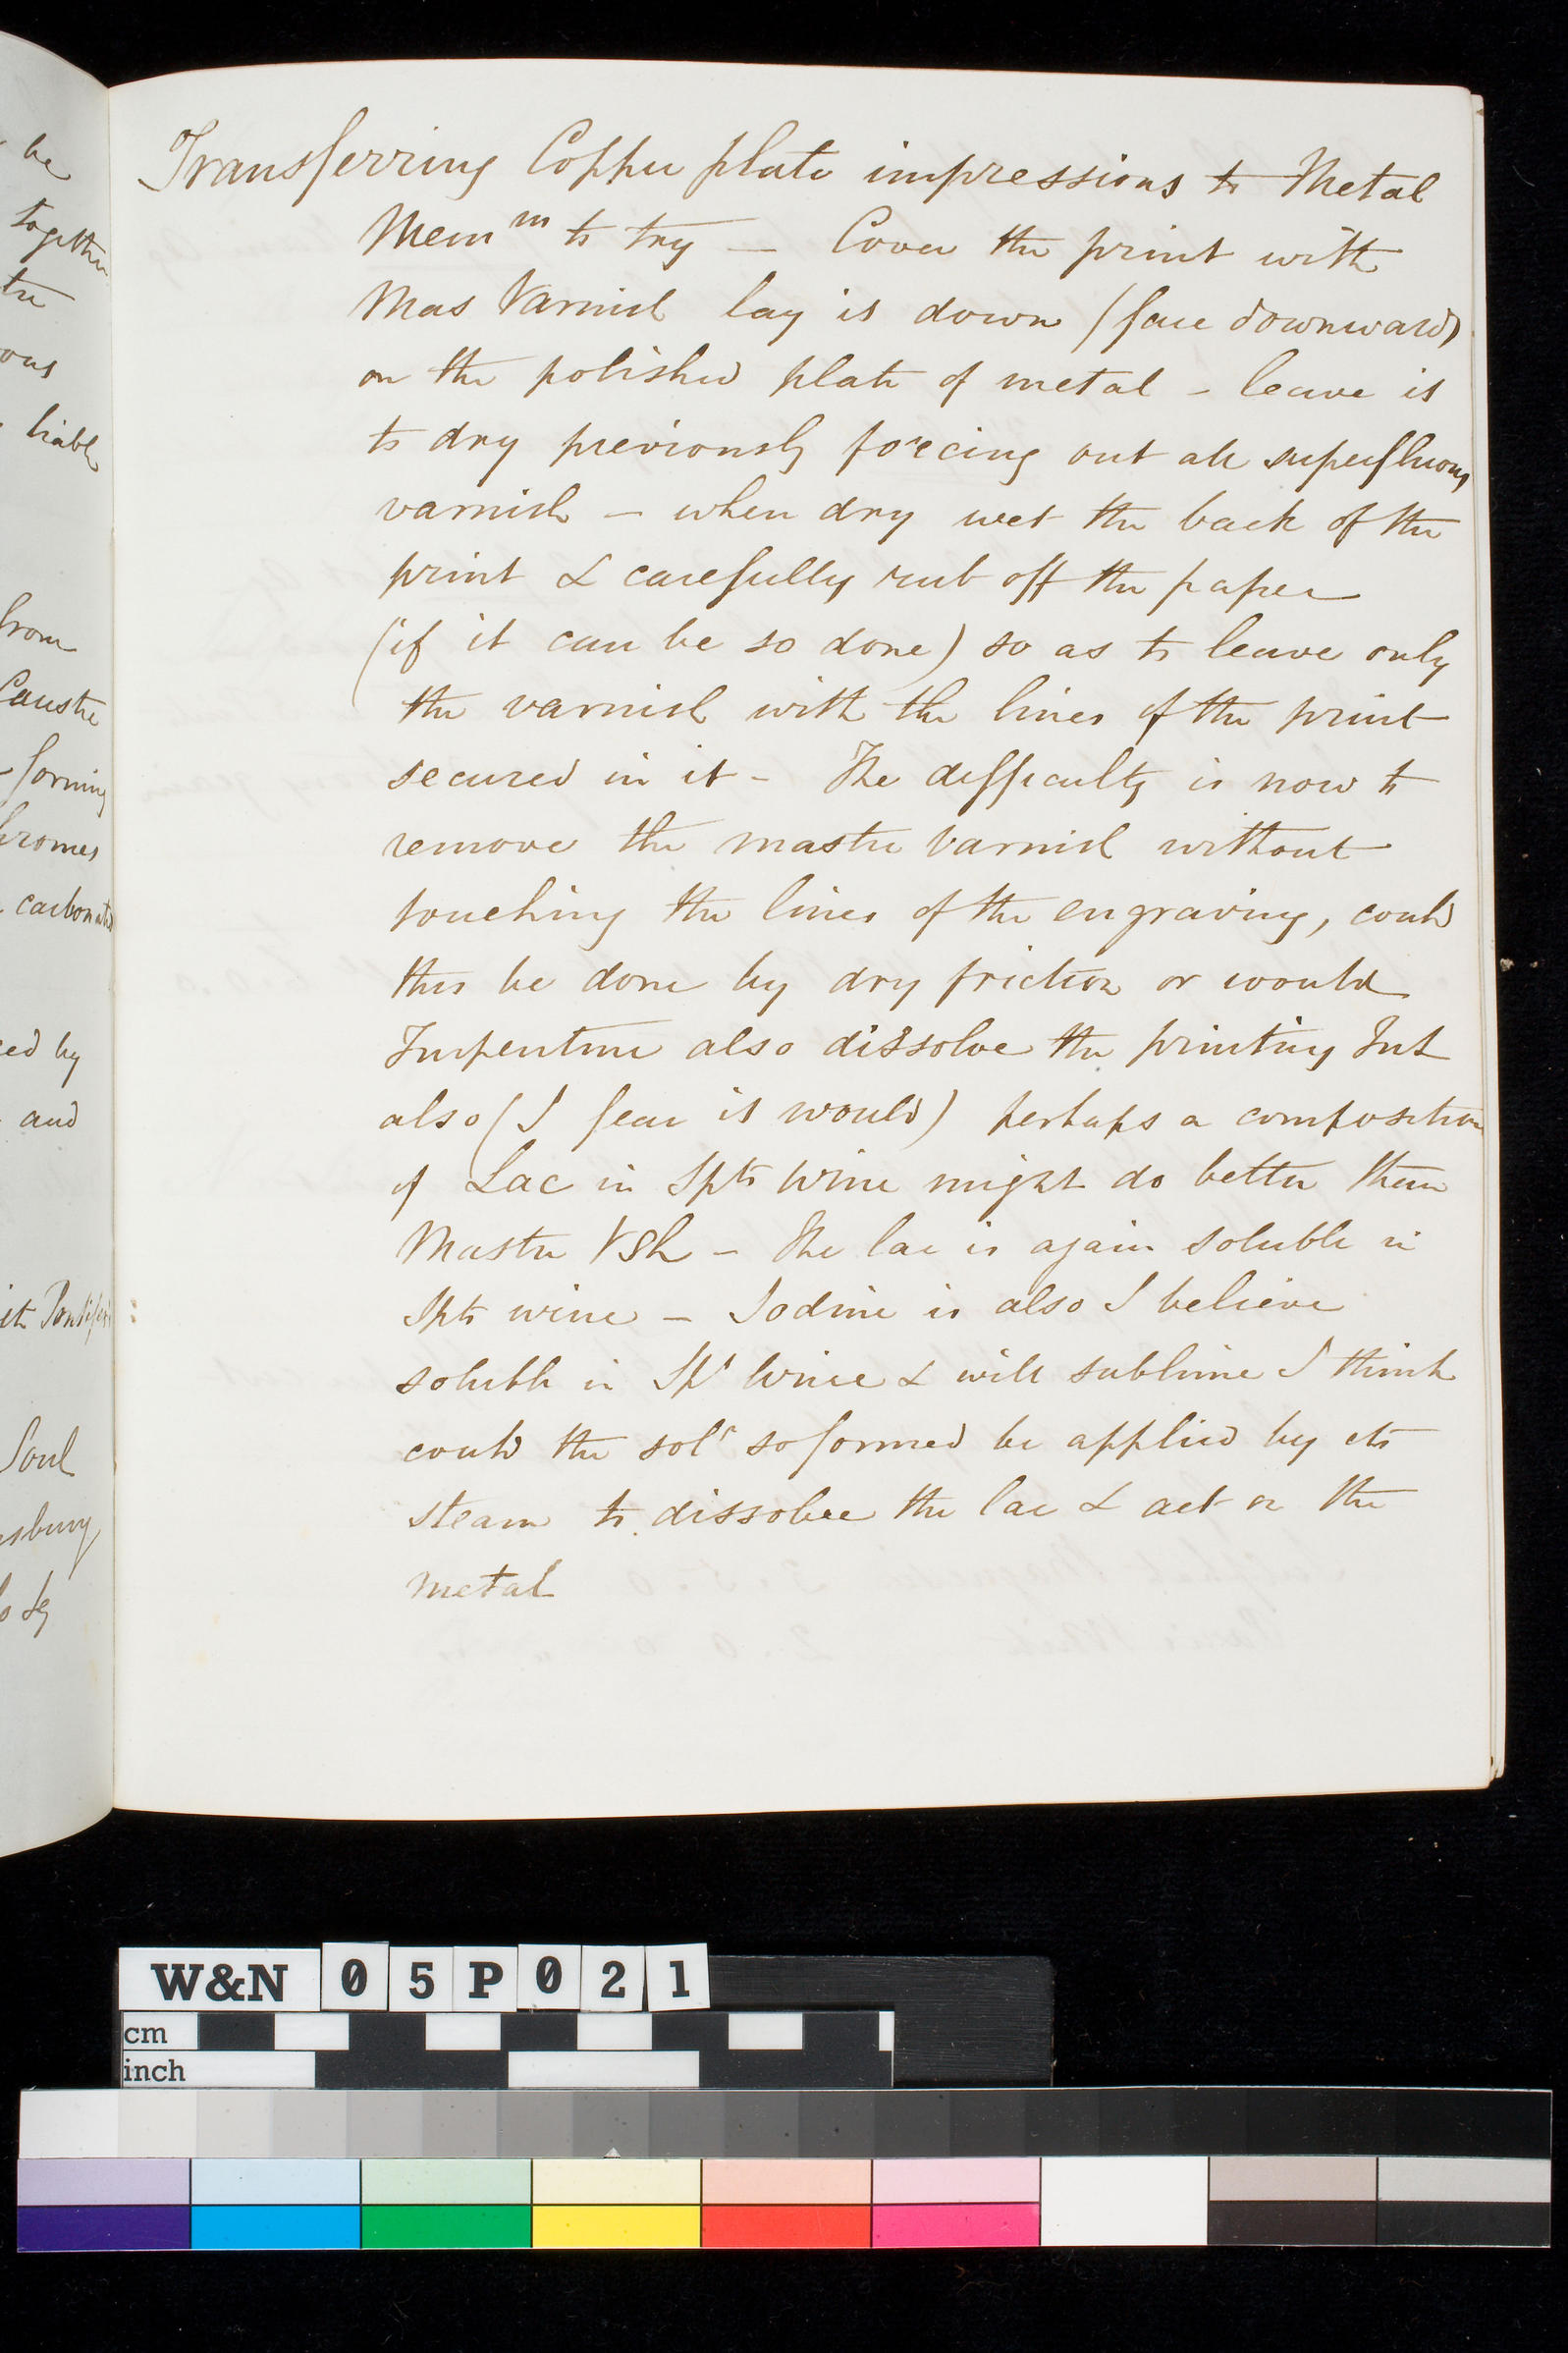 be
together
the
ous
liable
from
Caustic
forming
hromes
carbonate
ced by
and
it
Soul
sbury
Transferring Copper plate impressions to Metal
Mem^m to try — Cover the print with
Mas Varnish lay it down (face downward)
on the polished plate of metal - leave it
to dry previously forcing out all superfluous
varnish — when dry wet the back of the
print & carefully rub off the paper
(if it can be so done) so as to leave only
the varnish with the lines of the print
secured in it - The difficulty is now to
remove the mastic varnish without
touching the lines of the engraving, could
this be done by dry friction or would
Turpentine also dissolve the printing Ink
also (I fear it would) perhaps a composition
of Lac in Spts Wine might do better than
Mastic Vsh - The lac is again soluble in
Spts wine — Iodine is also I believe
soluble in Spt Wine & will sublime I think
could the soln so formed be applied by its
steam to dissolve the lac & act on the
metal
W&N 05P021
cm
inch